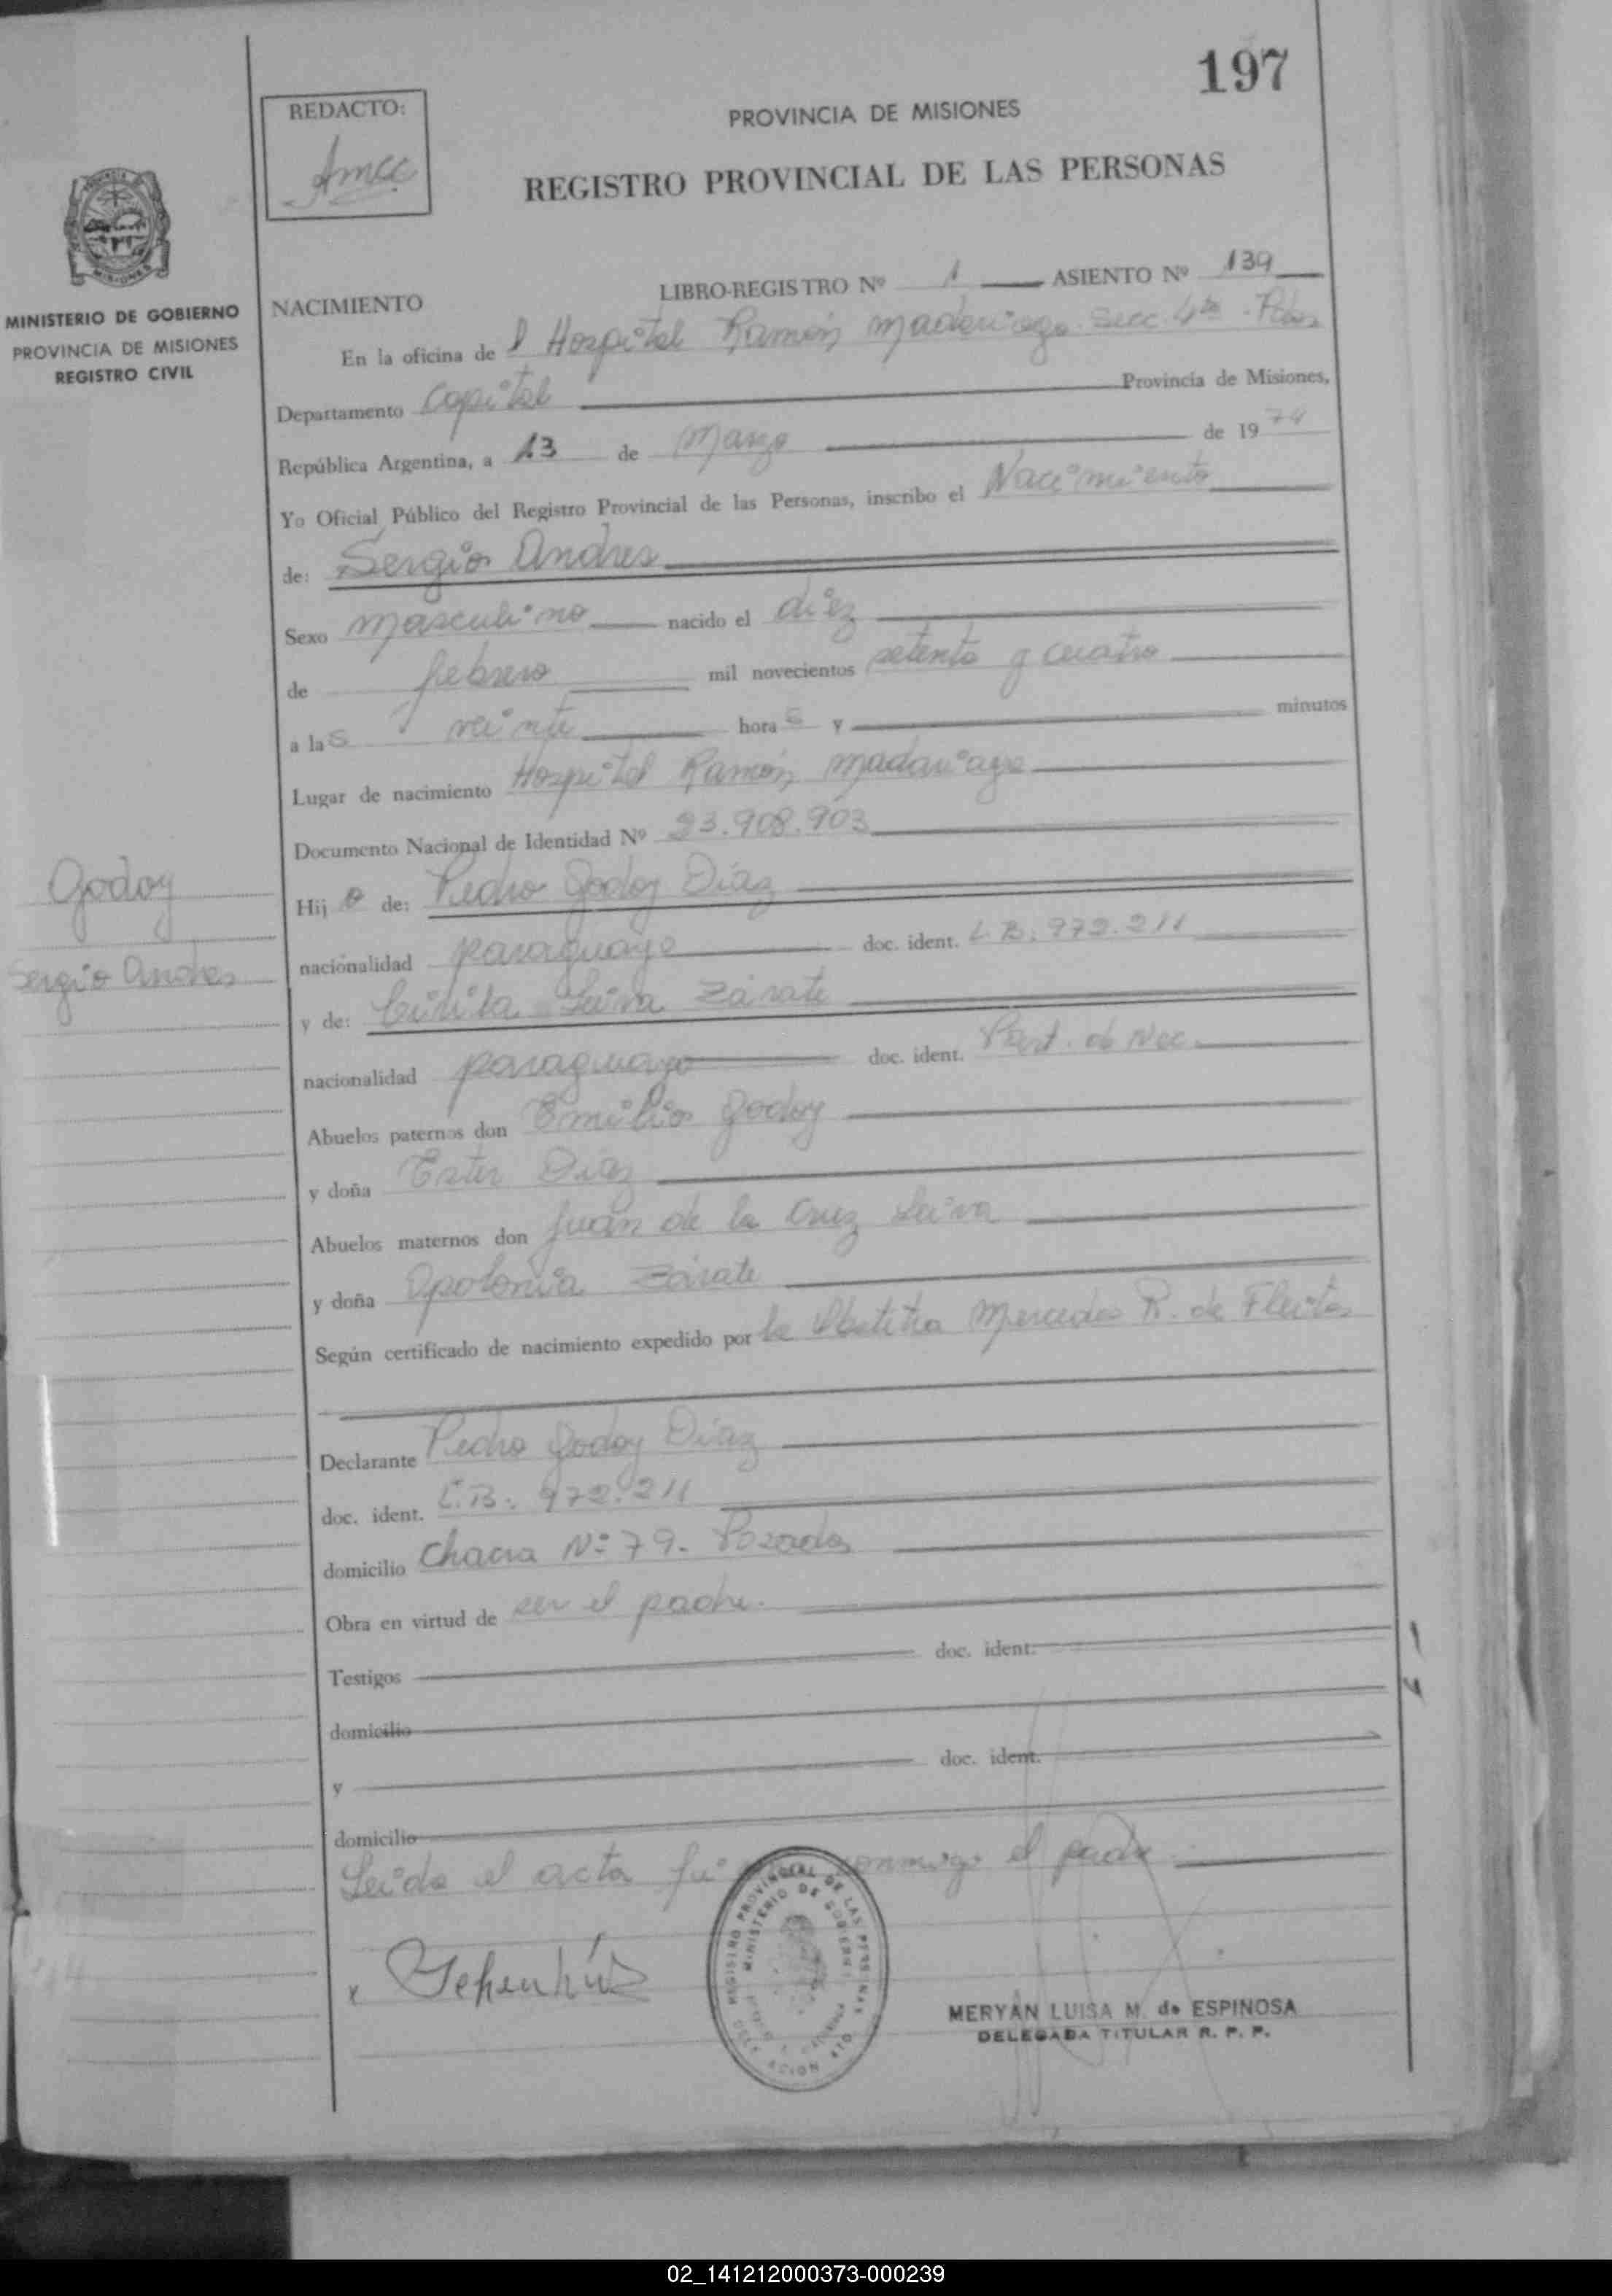 197
REDACTO:
Amcc
PROVINCIA DE MISIONES
REGISTRO PROVINCIAL DE LAS PERSONAS
MINISTERIO DE GOBIERNO
PROVINCIA DE MISIONES
REGISTRO CIVIL
NACIMIENTO LIBRO-REGISTRO Nº 1 ASIENTO Nº 139
En la oficina de l Hospital Ramón Madariaga. Secc. 4ta - Pdas
Departamento Capital Provincia de Misiones,
República Argentina, a 13 de Marzo de 1974
Yo Oficial Público del Registro Provincial de las Personas, inscribo el Nacimiento
de: Sergio Andres
Sexo masculino nacido el diez
de febrero mil novecientos setenta y cuatro
a las veinte horas y minutos
Lugar de nacimiento Hospital Ramón Madariaga
Documento Nacional de Identidad Nº 23.908.903
Godoy
Sergio Andres
Hijo de: Pedro Godoy Díaz
nacionalidad paraguayo doc. ident. C.B. 972.211
y de: Leiva Zárate
nacionalidad paraguayo doc. ident. Part. de Nac.
Abuelos paternos don Emilio Godoy
y doña Ester Díaz
Abuelos maternos don Juan de la Cruz Leiva
y doña Apolonia Zárate
Según certificado de nacimiento expedido por la Obstetra Mercedes R. de Fleitas
Declarante Pedro Godoy Díaz
doc. ident. C.B. 972.211
domicilio Chacra Nº 79. Posadas
Obra en virtud de ser el padre.
Testigos doc. ident.
domicilio
y doc. ident.
domicilio
Leida el acta conmigo el padre
REGISTRO PROVINCIAL DE LAS PERSONAS
MINISTERIO DE GOBIERNO
MERYAN LUISA M. de ESPINOSA
DELEGADA TITULAR R. P. P.
02_141212000373-000239